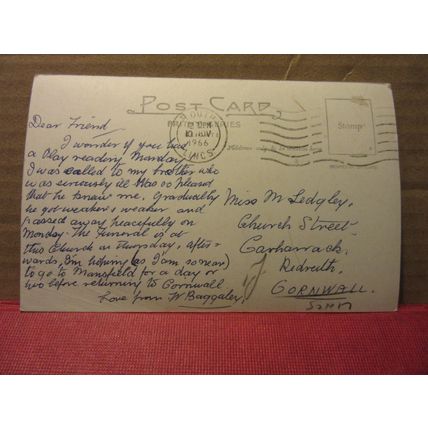 POST CARD
12 30 PM
10 NOV
1966
LINCS
Stamp
Dear Friend
I wonder if you had
a Play reading Monday
I was called to my brother who
was seriously ill. Was so pleased
that he knew me. Gradually
he got weaker & weaker and
passed away peacefully on
Monday. The Funeral is at
this Church on Thursday, after-
wards, I'm hoping (as I am so near)
to go to Mansfield for a day or
two before returning to Cornwall
Love from W Baggaley
Miss M Ledgley,
Church Street
Carharrack,
Redruth,
CORNWALL.